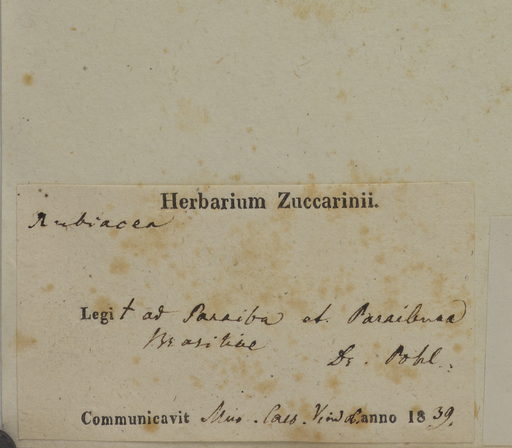 Herbarium Zuccarinii.
Rubiacea
Legit ad Paraiba et Paraibuna
Brasiliae Dr. Pohl.
Communicavit Mus. Caes. Vind. anno 1839.